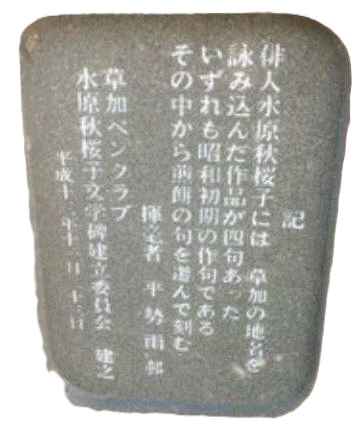 記
俳人水原秋桜子には 草加の地名を
詠み込んだ作品が四句あった
いずれも昭和初期の作句である
その中から煎餅の句を選んで刻む
揮毫者 平勢雨邨
草加ペンクラブ
水原秋桜子文学碑建立委員会 建之
平成十 年十一月二十三日